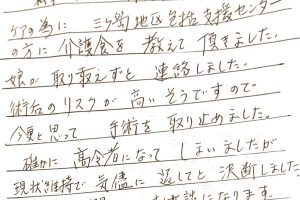 ケアの為に 三ヶ島地区包括支援センター
の方に 介護食を 教えて 頂きました。
娘が 取り敢えずと 連絡しました。
術后のリスクが 高いそうですので
今更と思って 手術を 取り止めました。
確かに 高令者になって しまいましたが
現状維持で 気儘に 返してと 決断しました
談になります。